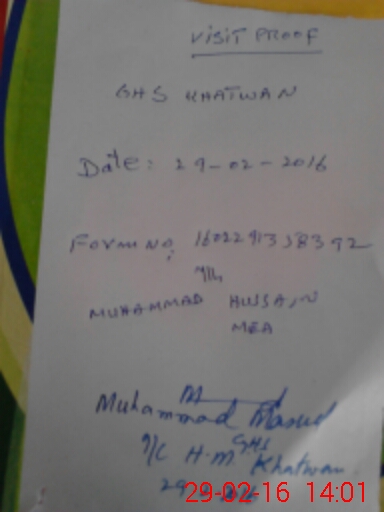 VISIT PROOF
GHS KHATWAN
Date: 29-02-2016
Form No:
MUHAMMAD HUSSAIN
MEA
Muhammad Masud
I/C H.M GHS Khatwan
29-02-16 14:01